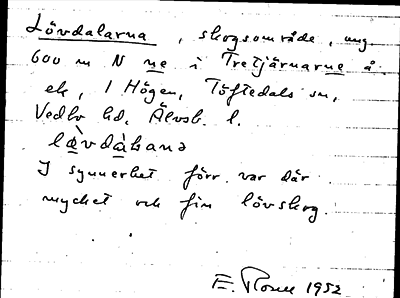 Lövdalarna, skogsområde, ung
600 m N ne i Tretjärnarne å
ek, 1 Högen, Töftedals sn,
Vedbo hd, Älvsb. l.
lə̀vdàɫana
I synnerhet förr var där
mycket och fin lövskog.
E. 1952